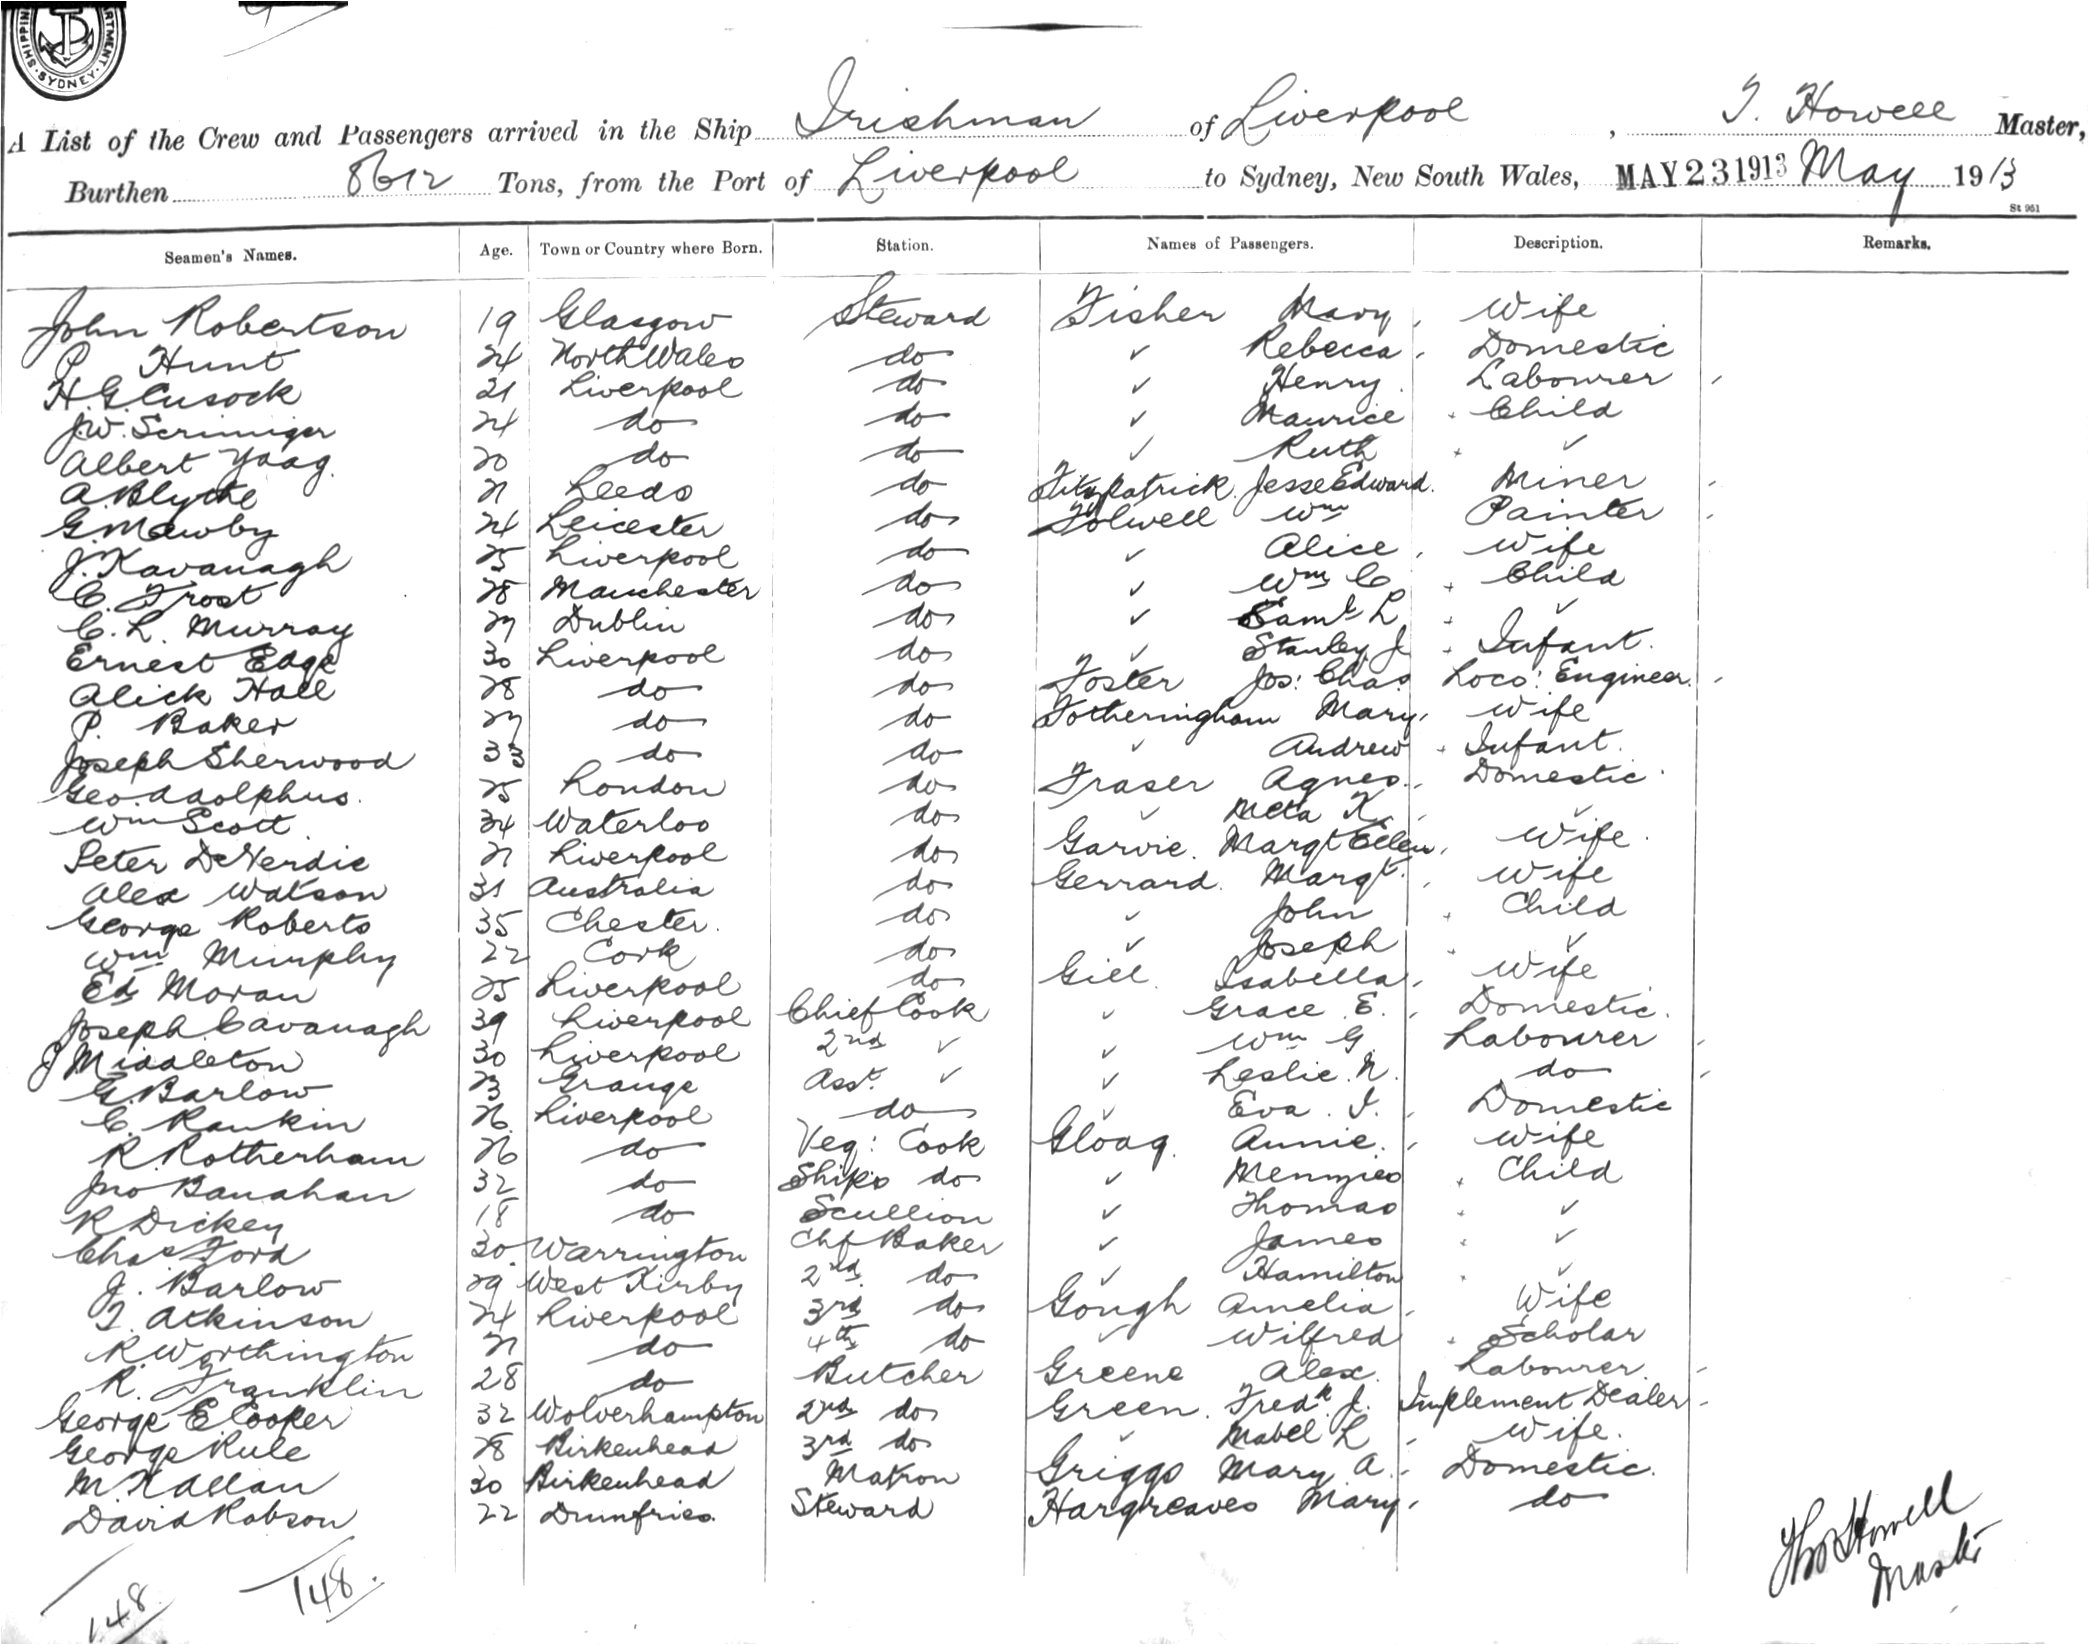 SHIPPING DEPARTMENT. SYDNEY.
A List of the Crew and Passengers arrived in the Ship Irishman of Liverpool, T. Howell Master,
Burthen 8612 Tons, from the Port of Liverpool to Sydney, New South Wales, MAY 23 1913 May 1913
St 961
Seamen's Names. Age. Town or Country where Born. Station. Names of Passengers. Description. Remarks.
John Robertson 19 Glasgow Steward Fisher Mary, Wife
P Hunt 24 North Wales do ✓ Rebecca, Domestic
H.G. Cusock 21 Liverpool do ✓ Henry. Labourer
J.W. Scrimiger 24 do do ✓ Maurice Child
Albert Yaag. 20 do do ✓ Ruth ✓
A Blythe 21 Leeds do Fitzpatrick. Jesse Edward. Miner
G. Mawby 24 Leicester do Folwell Wm Painter
J. Kavanagh 25 Liverpool do ✓ Alice, Wife
C. Frost 28 Manchester do ✓ Wm C Child
C. L. Murray 27 Dublin do ✓ Saml L ✓
Ernest Edge 30 Liverpool do ✓ Stanley J. Infant.
Alick Hall 28 do do Foster Jos: Chas Loco: Engineer.
P. Baker 27 do do Fotheringham Mary, Wife
Joseph Sherwood 33 do do ✓ Andrew Infant.
Geo. Adolphus. 25 London do Fraser Agnes. Domestic
Wm Scott. 34 Waterloo do ✓ Meta K. ✓
Peter DeNerdie 21 Liverpool do Garvie. Margt Ellen, Wife.
Alex Watson 31 Australia do Gerrard. Margt. Wife
George Roberts 35 Chester. do ✓ John Child
Wm Murphy 22 Cork do ✓ Joseph ✓
Ed Moran 25 Liverpool do Gill. Isabella, Wife
Joseph Cavanagh 39 Liverpool Chief Cook ✓ Grace E. Domestic.
J Middleton 30 Liverpool 2nd ✓ ✓ Wm G. Labourer
G. Barlow 23 Grange Asst. ✓ ✓ Leslie. N. do
C. Rankin 26. Liverpool do ✓ Eva. I. Domestic
R. Rotherham 26 do Veg: Cook Gloag. Annie. Wife
Jno Banahan 32 do Ships do ✓ Menzies Child
R Dickey 18 do Scullion ✓ Thomas ✓
Chas Ford 30. Warrington Chf Baker ✓ James ✓
J. Barlow 29 West Kirby 2nd do ✓ Hamilton ✓
T. Atkinson 24 Liverpool 3rd do Gough Amelia Wife
R. Worthington 21 do 4th do ✓ Wilfred Scholar
R. Franklin 28 do Butcher Greene Alex. Labourer
George E Cooper 32 Wolverhampton 2nd do Green. Fredk. J. Implement Dealer
George Rule 28 Birkenhead 3rd do ✓ Mabel L Wife.
M. Hallan 30 Birkenhead Matron Griggs Mary A. Domestic.
David Robson 22 Dumfries. Steward Hargreaves Mary, do
148. 148.
Thos Howell
Master